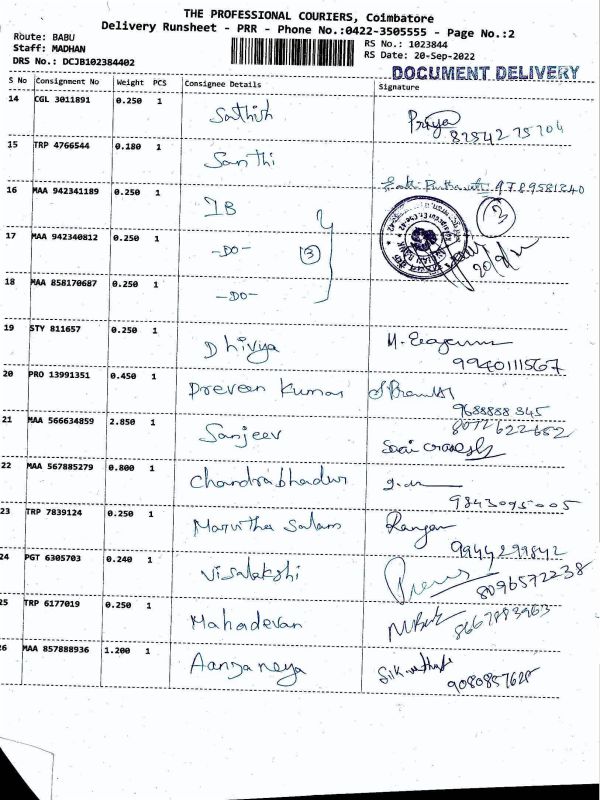 THE PROFESSIONAL COURIERS, Coimbatore
Delivery Runsheet - PRR - Phone No.:0422-3505555 - Page No.:2
Route: BABU
Staff: MADHAN
RS No.: 1023844
DRS No.: DCJB102384402
RS Date: 20-Sep-2022
DOCUMENT DELIVERY
S No Consignment No Weight PCS Consignee Details Signature
14 CGL 3011891 0.250 1 Sathish Priya
8754275704
15 TRP 4766544 0.180 1 Santhi 9789581240
16 MAA 942341189 0.250 1 IB 3
17 MAA 942340812 0.250 1 -DO- 3
18 MAA 858170687 0.250 1 -DO-
19 STY 811657 0.250 1 Dhivya
9940111567
20 PRO 13991351 0.450 1 Preveen Kumar
9688888345
21 MAA 566634859 2.850 1 Sanjeev 8072622652
22 MAA 567885279 0.800 1 Chandrabhadur
9843095005
23 TRP 7839124 0.250 1 Marutha Salam Ranjan
9944299842
24 PGT 6305703 0.240 1 Visalakshi
8096572238
25 TRP 6177019 0.250 1 Mahadevan 8667883963
26 MAA 857888936 1.200 1 Aanjaneya
9080857625